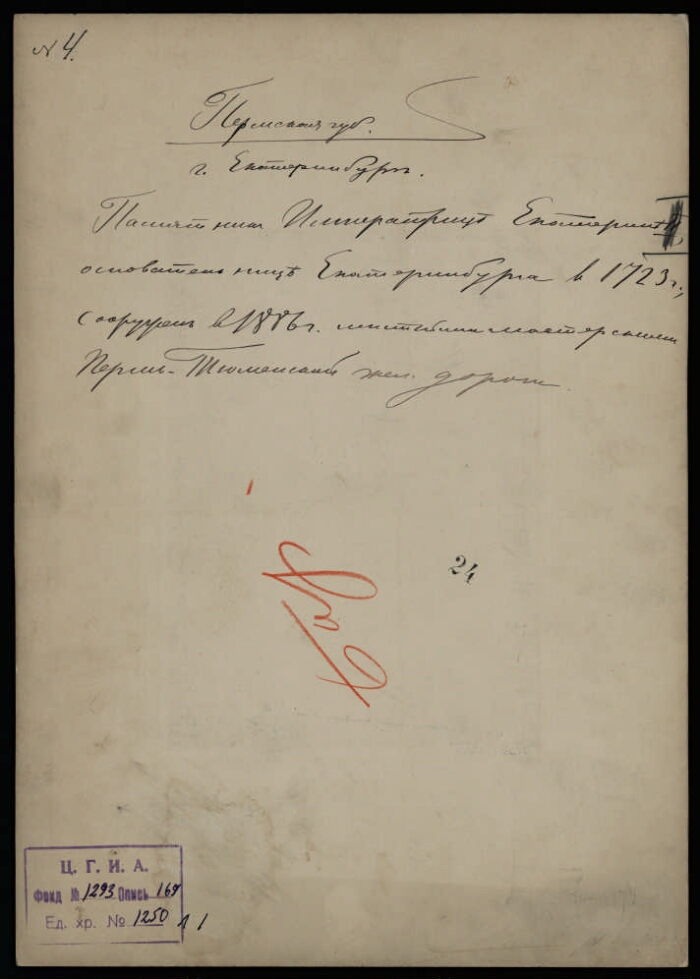 № 4.
Пермская губ.
г. Екатеринбургъ.
Памятникъ Императрицѣ Екатеринѣ
основательницѣ Екатеринбурга в 1723 г.,
сооруженъ в 1886 г. мастерскими
Пермь-Тюменской жел. дороги.
24
Ц. Г. И. А.
Фонд № 1293 Опись 169
Ед. хр. № 1250